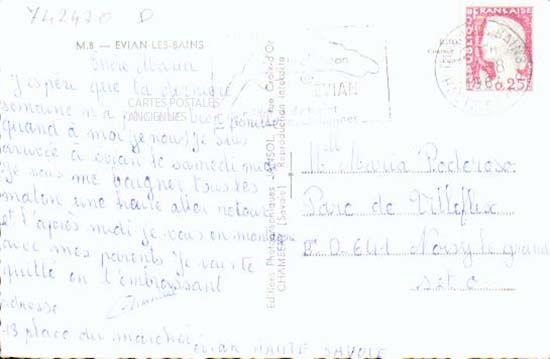 742420 D
M.8 — EVIAN-LES-BAINS
Chère Maria
J'espère que la dernière
semaine m'a pas
quand à moi je suis
arrivée à évian le samedi midi
je vais me baigner tous les
matin une heure aller retour
et l'après midi je vais en montagne
avec mes parents je vais te
quitté en t'embrassant
adresse
13 place du marché évian HAUTE SAVOIE
CARTES POSTALES
ANCIENNES
EVIAN
Editions Photographiques rue Croix-d'Or
CHAMBERY (Savoie) Reproduction interdite
REPUBLIQUE FRANÇAISE
0,25
Mlle Maria Poderoso
Parc de Villeflix
Bt D 641 Noisy le grand
S et O